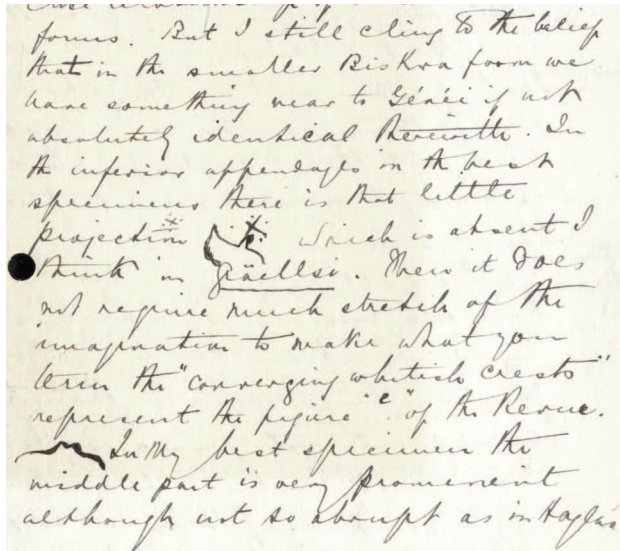 forms. But I still cling to the belief
that in the smaller Biskra form we
have something near to Généi if not
absolutely identical therewith. In
the inferior appendages in the best
specimens there is that little
projection x x which is absent I
think in Graëllsi. Then it does
not require much stretch of the
imagination to make what you
term the "converging whitish crests"
represent the figure "c" of the Revue.
In my best specimen the
middle part is very prominent
although not so abrupt as in